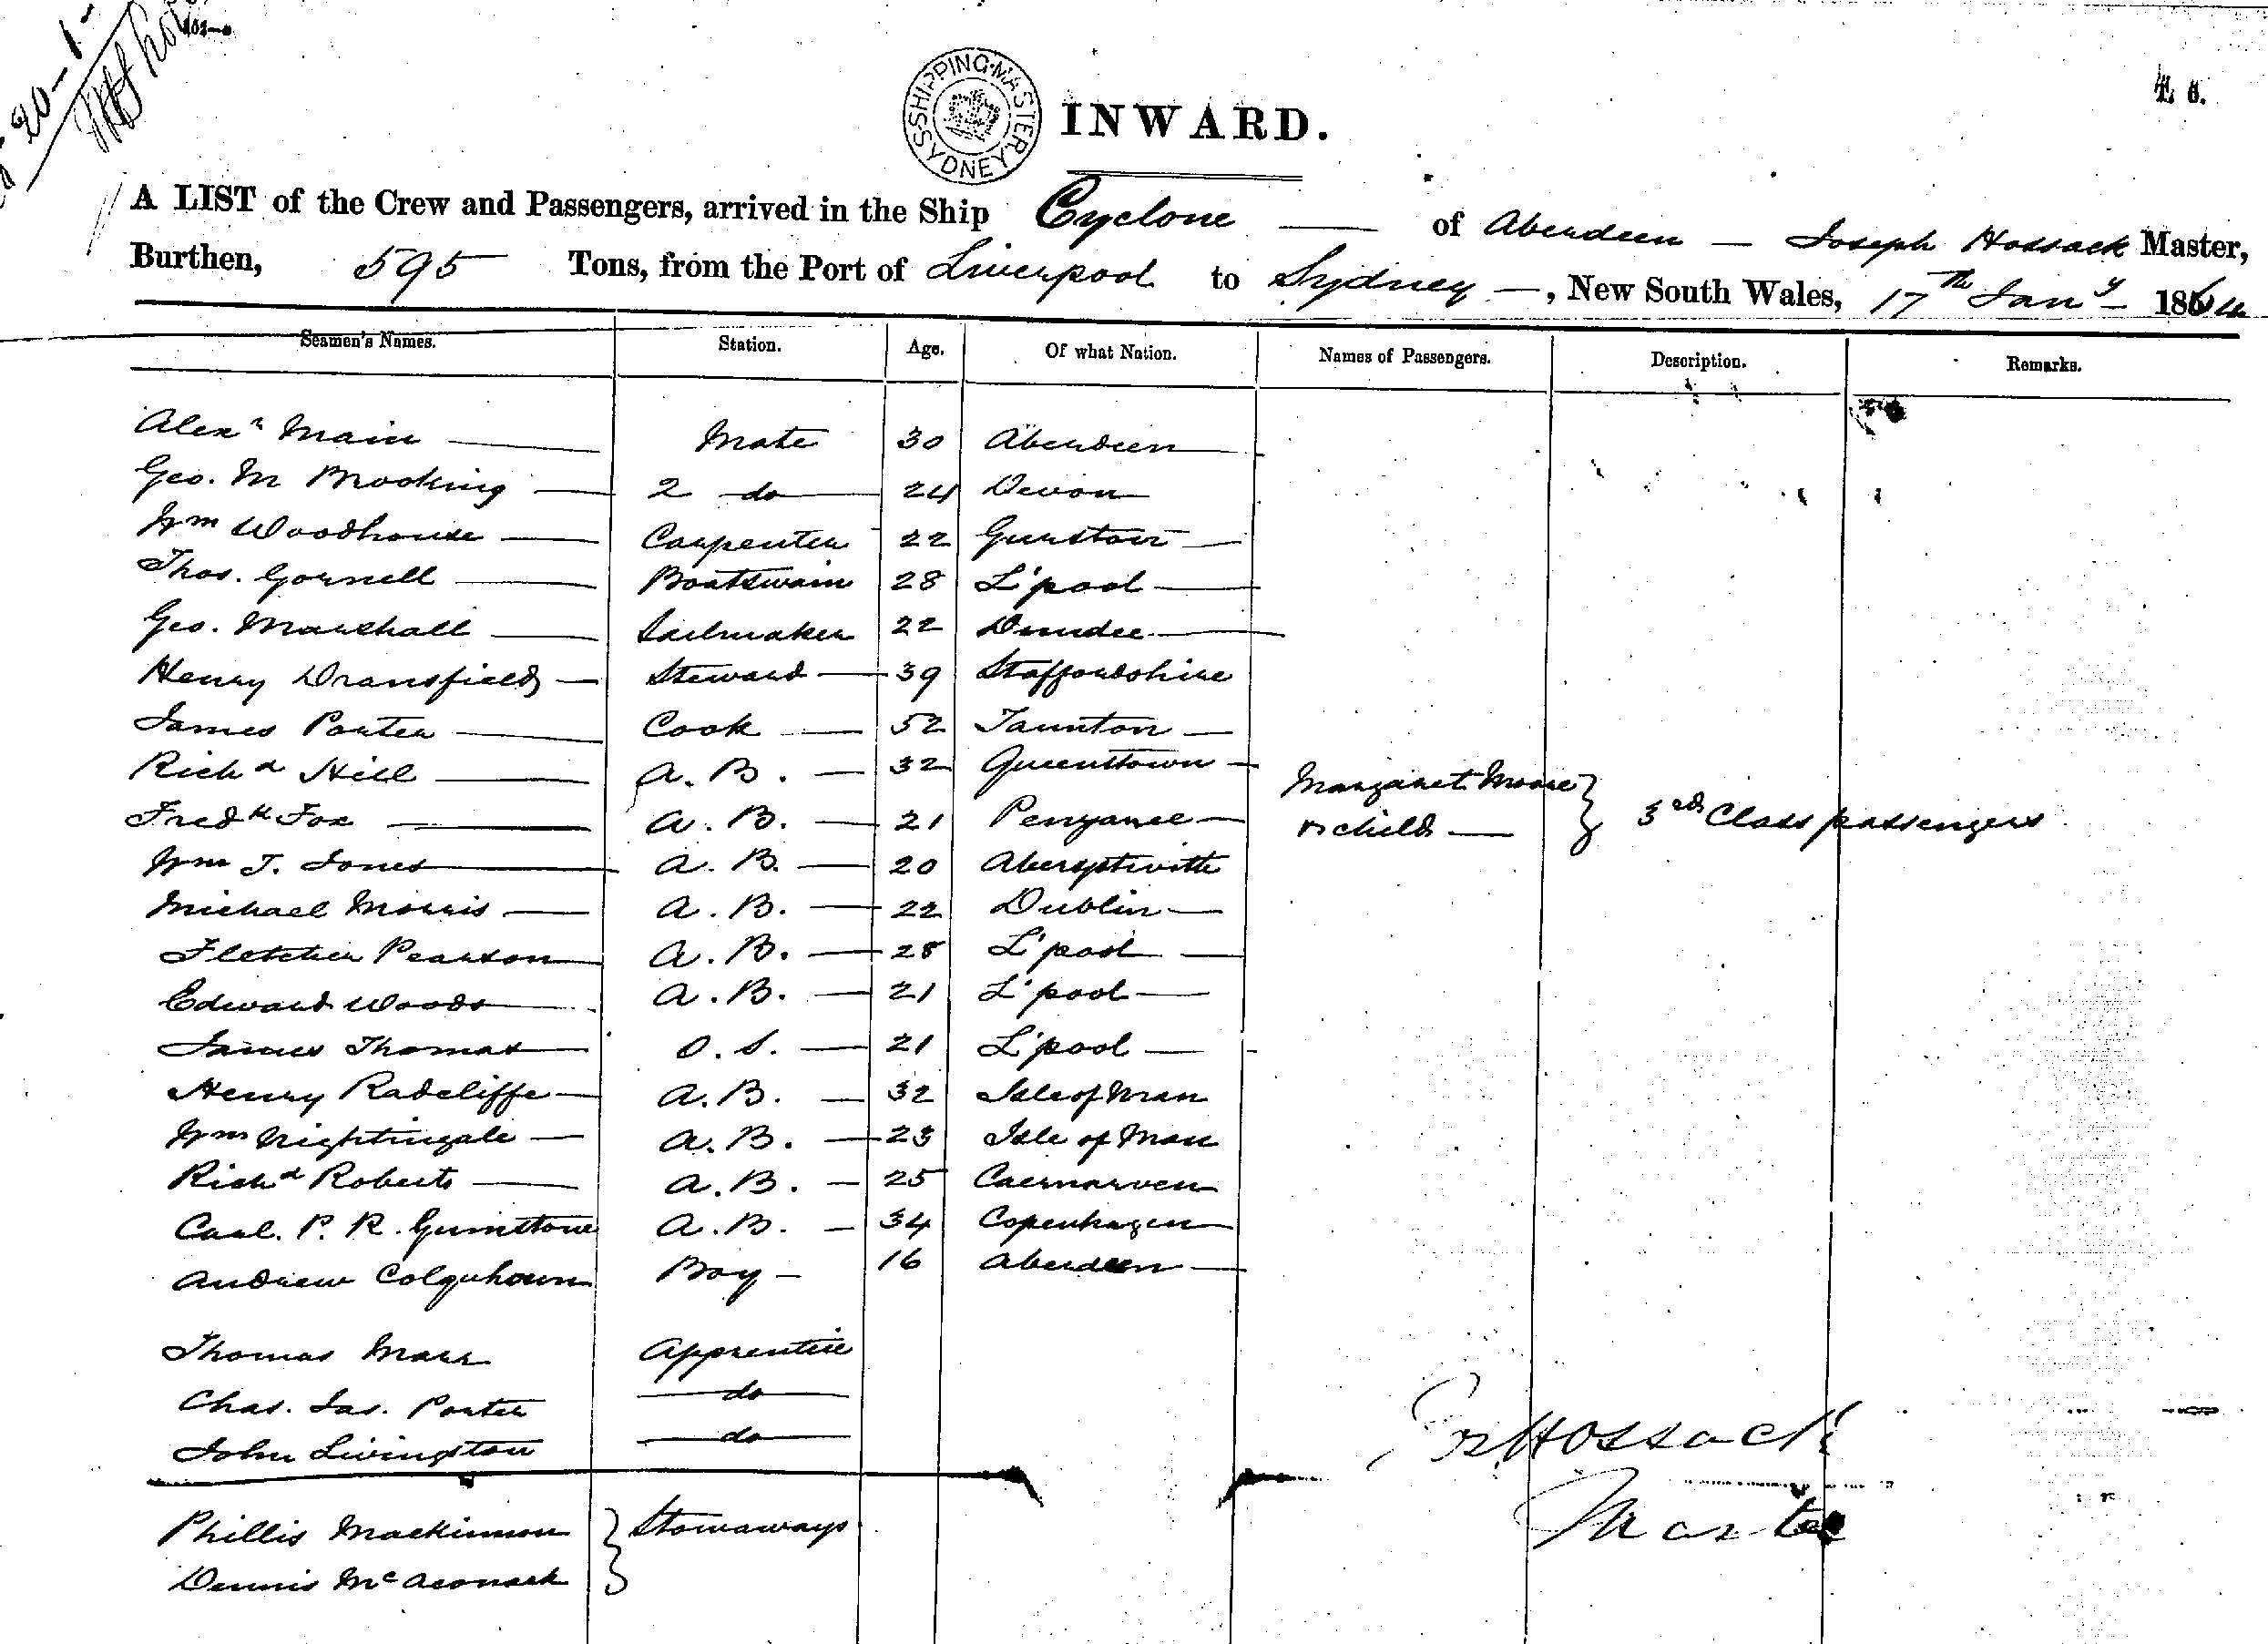 20-1-
INWARD.
SHIPPING MASTER SYDNEY
A LIST of the Crew and Passengers, arrived in the Ship Cyclone — of Aberdeen — Joseph Hossack Master,
Burthen, 595 Tons, from the Port of Liverpool to Sydney —, New South Wales, 17th Jany — 1864
Seamen's Names. Station. Age. Of what Nation. Names of Passengers. Description. Remarks.
Alexr Main — Mate 30 Aberdeen —
Geo. M Brooking — 2 do — 24 Devon —
Wm Woodhouse — Carpenter 22 —
Thos. Gornell — Boatswain 28 L'pool —
Geo. Marshall — Sailmaker 22 Dundee —
Henry Dransfield — Steward — 39 Staffordshire
James Porter — Cook — 52 Taunton —
Richd Hill — A. B. — 32 Queenstown —
Margaret Moore
Fredk Fox — A. B. — 21 Penzance — & child — } 3rd Class passengers
Wm J. Jones — A. B. — 20 Aberystwith
Michael Morris — A. B. — 22 Dublin —
Fletcher Pearson — A. B. — 28 L'pool —
Edward Woods — A. B. — 21 L'pool —
James Thomas — O. S. — 21 L'pool —
Henry Radcliffe — A. B. — 32 Isle of Man
Wm Nightingale — A. B. — 23 Isle of Man
Richd Roberts — A. B. — 25 Caernarven
Carl. P. R. Grimstone A. B. — 34 Copenhagen
Andrew Colquhoun Boy — 16 Aberdeen —
Thomas Marr Apprentice
Chas. Jas. Porter — do —
John Livingston — do —
Jos Hossack
Master
Phillis Mackinnon } Stowaways
Dennis